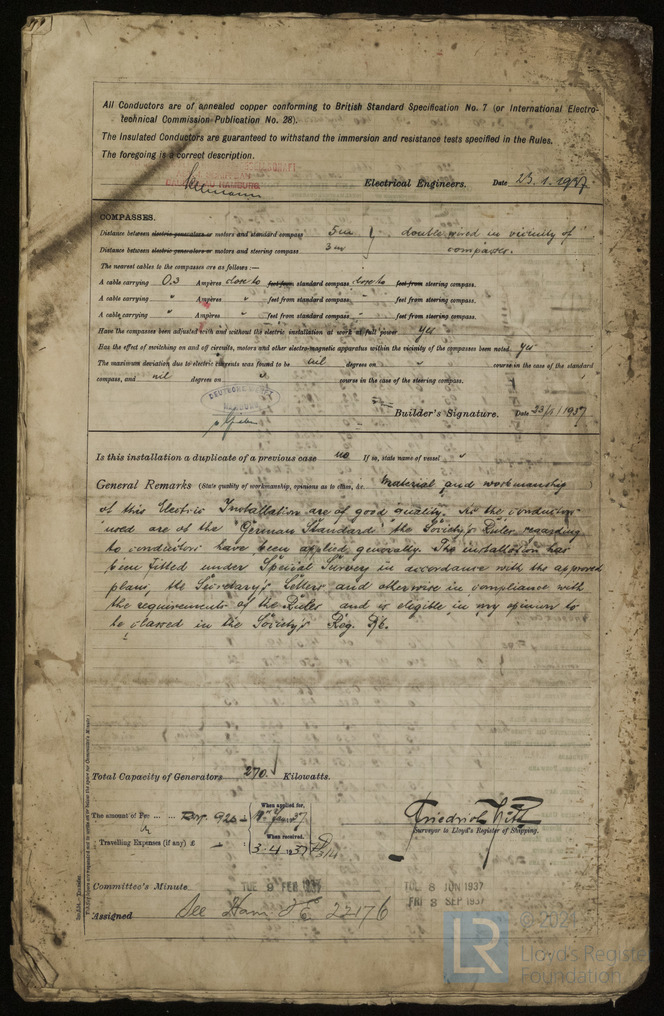 All Conductors are of annealed copper conforming to British Standard Specification No. 7 (or International Electro-
technical Commission Publication No. 28).
The Insulated Conductors are guaranteed to withstand the immersion and resistance tests specified in the Rules.
The foregoing is a correct description.
Electrical Engineers. Date 23.1.1937.
COMPASSES.
Distance between electric generators or motors and standard compass 5 m } double wired in vicinity of
Distance between electric generators or motors and steering compass 3 m compasses.
The nearest cables to the compasses are as follows:—
A cable carrying 0,3 Ampères close to feet from standard compass close to feet from steering compass.
A cable carrying " Ampères " feet from standard compass " feet from steering compass.
A cable carrying " Ampères " feet from standard compass " feet from steering compass.
Have the compasses been adjusted with and without the electric installation at work at full power yes
Has the effect of switching on and off circuits, motors and other electro-magnetic apparatus within the vicinity of the compasses been noted yes
The maximum deviation due to electric currents was found to be nil degrees on " course in the case of the standard
compass, and nil degrees on " course in the case of the steering compass.
DEUTSCHE WERFT
HAMBURG
Builder's Signature. Date 23/1/1937
Is this installation a duplicate of a previous case no If so, state name of vessel "
General Remarks (State quality of workmanship, opinions as to class, &c. Material and workmanship
of this Electric Installation are of good quality. As the conductors
used are of the "German Standard" the Society's Rules regarding
to conductors have been applied generally. The installation has
been fitted under Special Survey in accordance with the approved
plans, the Secretary's Letters and otherwise in compliance with
the requirements of the Rules and is eligible in my opinion to
be classed in the Society's Reg. Bk.
Total Capacity of Generators 270 Kilowatts.
The amount of Fee ... ... 920 –
When applied for,
Travelling Expenses (if any) £ –
When received,
3.4.1937
Friedrich
Surveyor to Lloyd's Register of Shipping.
Committee's Minute TUE 9 FEB 1937
TUE 8 JUN 1937
FRI 3 SEP 1937
Assigned See Ham F.E. 22176
LR © 2021
Lloyd's Register
Foundation